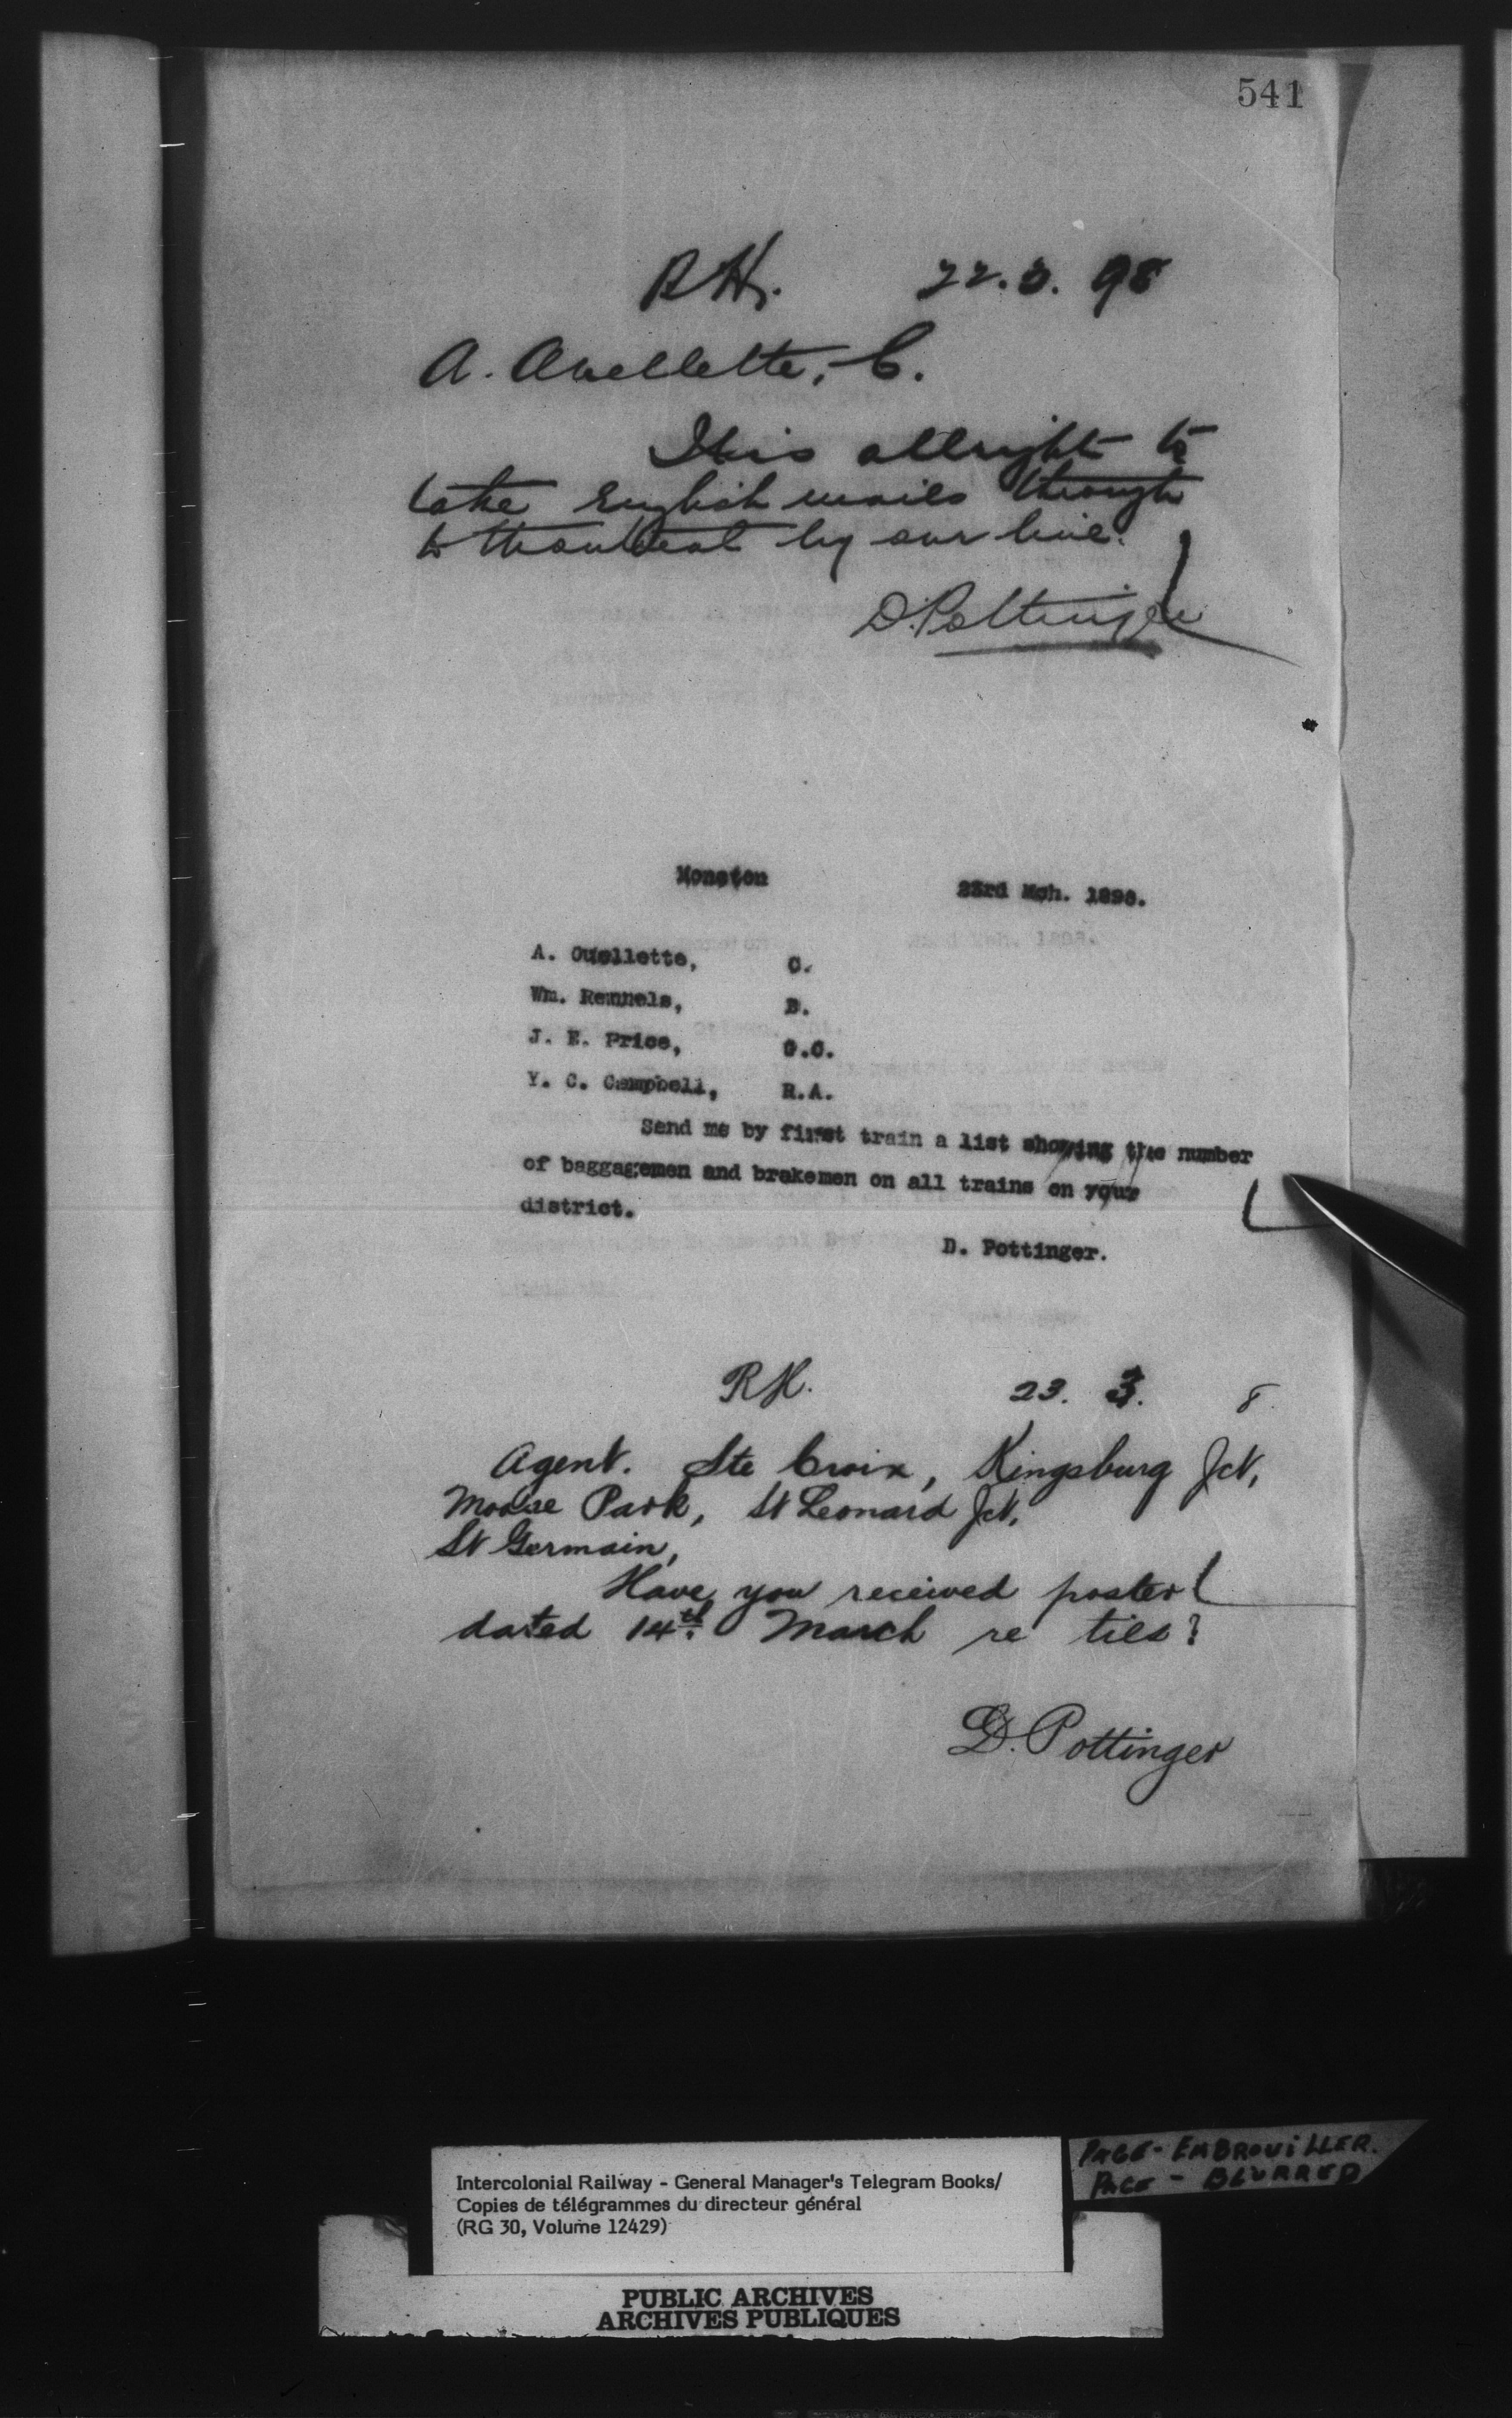 541
R H. 22.3.98
A. Ouellette, C.
It is allright to
take English mails through
to Montreal by our line.
D. Pottinger
Moncton 23rd Mch. 1898.
A. Ouellette, C.
Wm. Rennels, D.
J. E. Price, O.C.
Y. C. Campbell, R.A.
Send me by first train a list showing the number
of baggagemen and brakemen on all trains on your
district.
D. Pottinger.
RH. 23. 3. 8
Agent. Ste Croix, Kingsburg Jct,
Moose Park, St Leonard Jct,
St Germain,
Have you received poster
dated 14th March re ties?
D. Pottinger
PAGE - EMBROUILLER.
PAGE - BLURRED
Intercolonial Railway - General Manager's Telegram Books/
Copies de télégrammes du directeur général
(RG 30, Volume 12429)
PUBLIC ARCHIVES
ARCHIVES PUBLIQUES